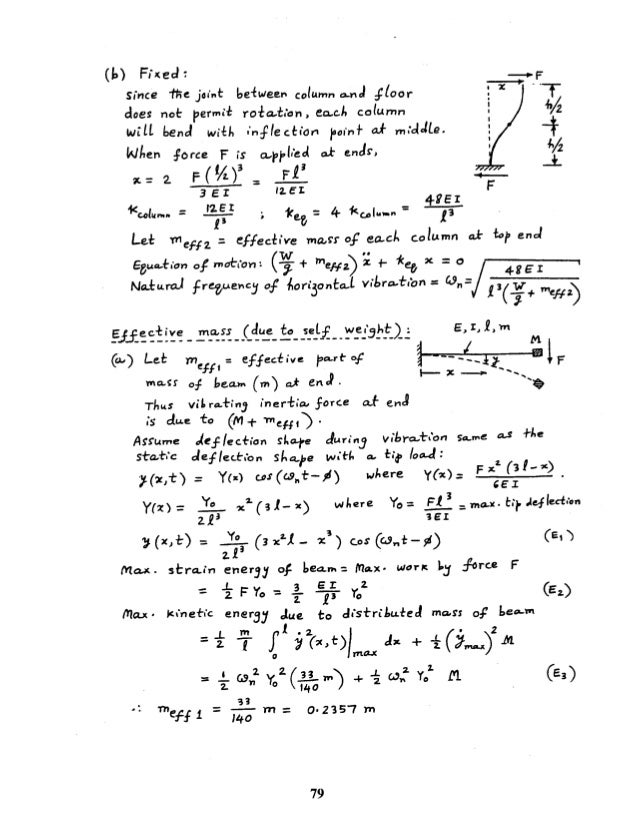 (b) Fixed:
Since the joint between column and floor
does not permit rotation, each column
will bend with inflection point at middle.
When force F is applied at ends,
x = 2 F(l/2)³ / 3EI = Fl³ / 12EI
k_column = 12EI / l³ ; k_eq = 4 k_column = 48EI / l³
Let m_eff2 = effective mass of each column at top end
Equation of motion: (W/g + m_eff2) ẍ + k_eq x = 0
Natural frequency of horizontal vibration = ω_n = √(48EI / l³(W/g + m_eff2))
F
x
h/2
h/2
F
Effective mass (due to self weight):
(a) Let m_eff1 = effective part of
mass of beam (m) at end.
Thus vibrating inertia force at end
is due to (M + m_eff1).
E, I, l, m
M
F
y
x
Assume deflection shape during vibration same as the
static deflection shape with a tip load:
y(x,t) = Y(x) cos(ω_n t - φ) where Y(x) = Fx²(3l - x) / 6EI .
Y(x) = Y₀ / 2l³ x²(3l - x) where Y₀ = Fl³ / 3EI = max. tip deflection
y(x,t) = Y₀ / 2l³ (3x²l - x³) cos(ω_n t - φ) (E₁)
Max. strain energy of beam = Max. work by force F
= ½ F Y₀ = 3/2 EI/l³ Y₀² (E₂)
Max. kinetic energy due to distributed mass of beam
= ½ m/l ∫₀ˡ ẏ²(x,t)|max dx + ½ (ẏmax)² M
= ½ ω_n² Y₀² (33/140 m) + ½ ω_n² Y₀² M (E₃)
∴ m_eff 1 = 33/140 m = 0.2357 m
79